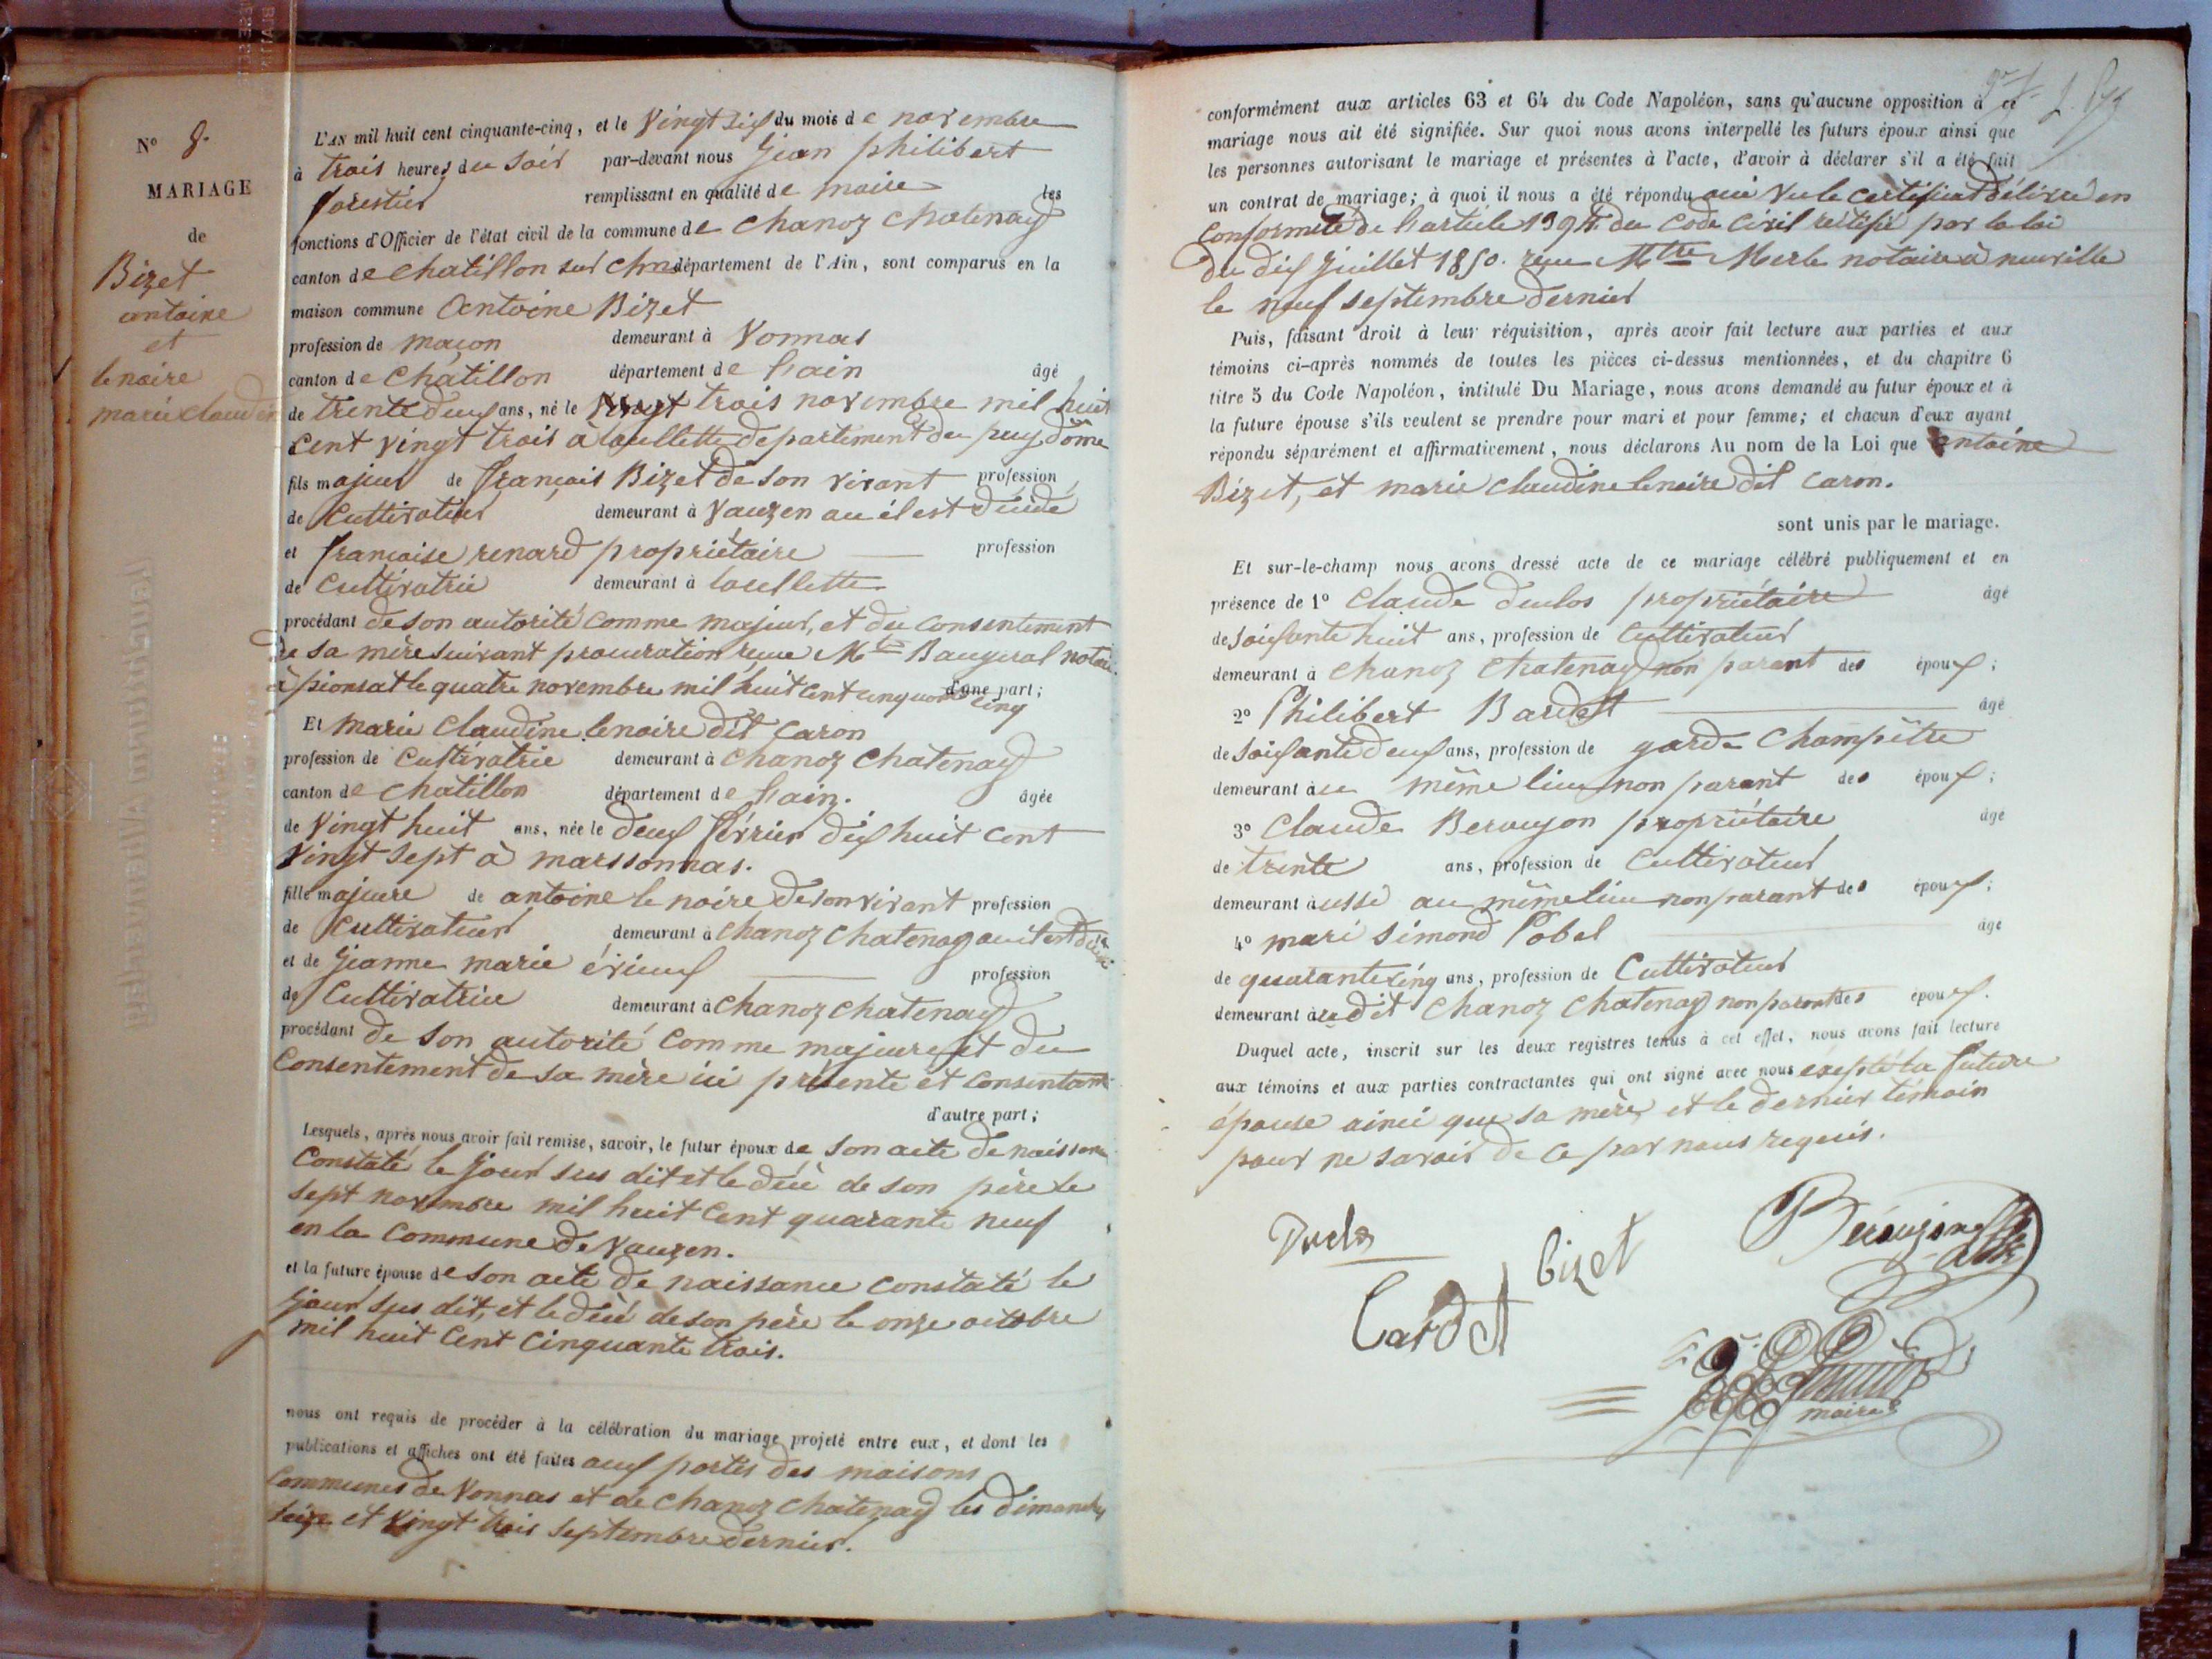 N° 8.
MARIAGE
de
Bizet
antoine
et
lenoire
marie claudine
L'AN mil huit cent cinquante-cinq, et le Vingt six du mois de novembre
à trois heures du soir par-devant nous Jean philibert
forestier remplissant en qualité de maire les
fonctions d'Officier de l'état civil de la commune de Chanoz Chatenay
canton de Chatillon sur Chne département de l'Ain, sont comparus en la
maison commune Antoine Bizet
profession de maçon demeurant à Vonnas
canton de Chatillon département de l'ain âgé
de trente deux ans, né le Vingt trois novembre mil huit
cent vingt trois à département du puy dôme
fils majeur de françois Bizet de son vivant profession
de Cultivateur demeurant à Vauzen ou il est décédé
et françoise renard propriétaire profession
de Cultivatrice demeurant à
procédant de son autorité comme majeur, et du consentement
de sa mère suivant procuration reçue Mtre notaire
à pionsat le quatre novembre mil huit cent cinquante cinq d'une part;
Et marie Claudine lenoire dit Caron
profession de Cultivatrice demeurant à Chanoz Chatenay
canton de Chatillon département de l'ain. âgée
de Vingt huit ans, née le deux février dix huit cent
Vingt sept à marssonnas.
fille majeure de antoine le noire de son vivant profession
de Cultivateur demeurant à Chanoz Chatenay ou il est décédé
et de Jeanne marie érieux profession
de Cultivatrice demeurant à Chanoz Chatenay
procédant de son autorité comme majeure et du
Consentement de sa mère ici présente et consentante
d'autre part;
Lesquels, après nous avoir fait remise, savoir, le futur époux de son acte de naissance
Constaté le jour sus dit et le décè de son père le
sept novembre mil huit cent quarante neuf
en la Commune de Vauzen.
et la future épouse de son acte de naissance constaté le
jour sus dit, et le décè de son père le onze octobre
mil huit Cent Cinquante trois.
nous ont requis de procéder à la célébration du mariage projeté entre eux, et dont les
publications et affiches ont été faites aux portes des maisons
Communes de Vonnas et de Chanoz Chatenay les dimanches
seize et Vingt trois septembre dernier.
conformément aux articles 63 et 64 du Code Napoléon, sans qu'aucune opposition à ce
mariage nous ait été signifiée. Sur quoi nous avons interpellé les futurs époux ainsi que
les personnes autorisant le mariage et présentes à l'acte, d'avoir à déclarer s'il a été fait
un contrat de mariage; à quoi il nous a été répondu oui Vu le certificat délivré en
conformité de l'article 1394 du Code Civil rectifié par la loi
du dix Juillet 1850. reçu Mtre Merle notaire à neuville
le neuf septembre dernier
Puis, faisant droit à leur réquisition, après avoir fait lecture aux parties et aux
témoins ci-après nommés de toutes les pièces ci-dessus mentionnées, et du chapitre 6
titre 5 du Code Napoléon, intitulé Du Mariage, nous avons demandé au futur époux et à
la future épouse s'ils veulent se prendre pour mari et pour femme; et chacun d'eux ayant
répondu séparément et affirmativement, nous déclarons Au nom de la Loi que antoine
Bizet, et marie claudine lenoire dit Caron.
sont unis par le mariage.
Et sur-le-champ nous avons dressé acte de ce mariage célébré publiquement et en
présence de 1° Claude duclos propriétaire âgé
de soixante huit ans, profession de Cultivateur
demeurant à Chanoz Chatenay non parant des époux;
2° Philibert Bardet âgé
de soixante deux ans, profession de garde Champêtre
demeurant à au même lieu non parant des époux;
3° Claude Beroujon propriétaire âgé
de trente ans, profession de Cultivateur
demeurant à ussi au même lieu non parant des époux;
4° mari simond Pobel âgé
de quarante cinq ans, profession de Cultivateur
demeurant à dit Chanoz Chatenay non parant des époux.
Duquel acte, inscrit sur les deux registres tenus à cet effet, nous avons fait lecture
aux témoins et aux parties contractantes qui ont signé avec nous éxepté la future
épouse ainsi que sa mère, et le dernier témoin
pour ne savoir de ce par nous requis.
Duclos
bizet
Beroujon
bardet
maire